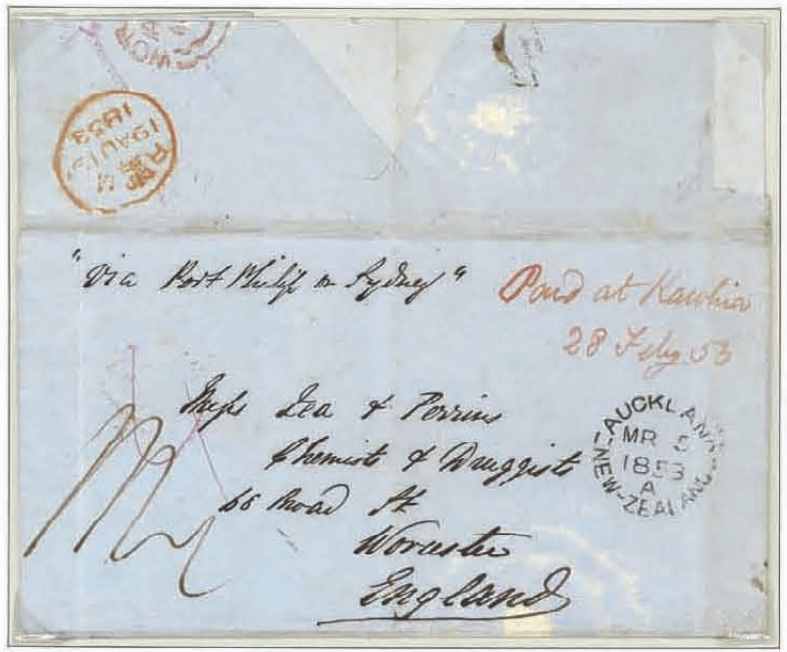 WOR
19 AU 19
1853
"Via Port Philip or Sydney"
Paid at Kawhia
28 Feby 53
Messs Lea & Perrins
Chemists & Druggists
68 Broad St
Worcester
England
AUCKLAND
MR 5
1853
A
NEW-ZEALAND